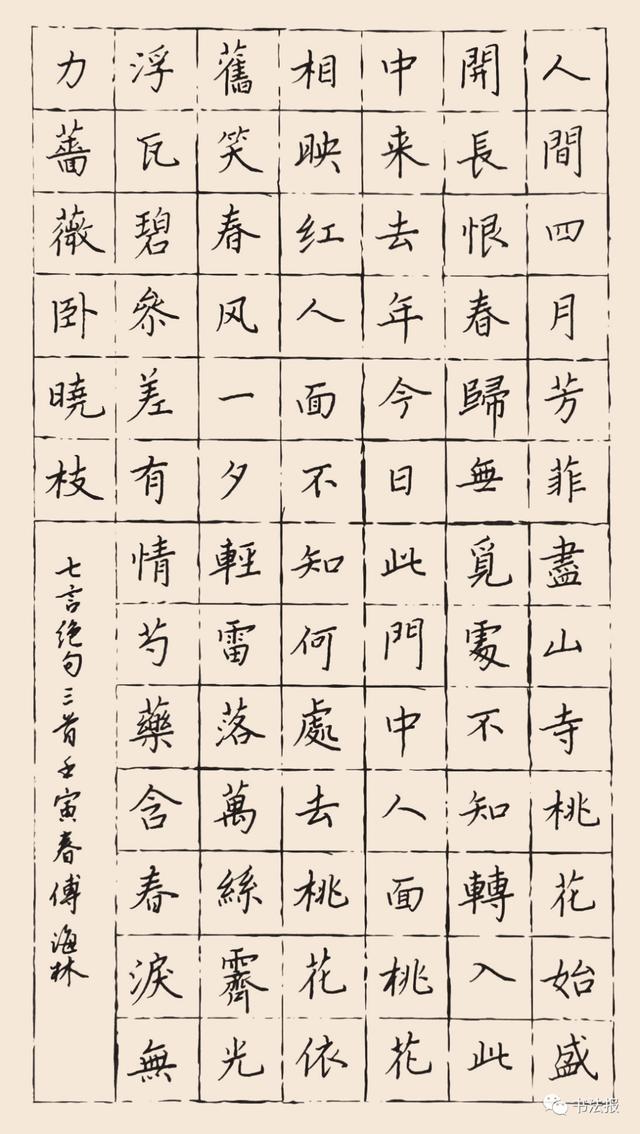 人間四月芳菲盡山寺桃花始盛
開長恨春歸無覓處不知轉入此
中来去年今日此門中人面桃花
相映红人面不知何處去桃花依
舊笑春风一夕輕雷落萬絲霽光
浮瓦碧參差有情芍藥含春淚無
力薔薇卧曉枝
七言绝句三首壬寅春傅海林
书法报